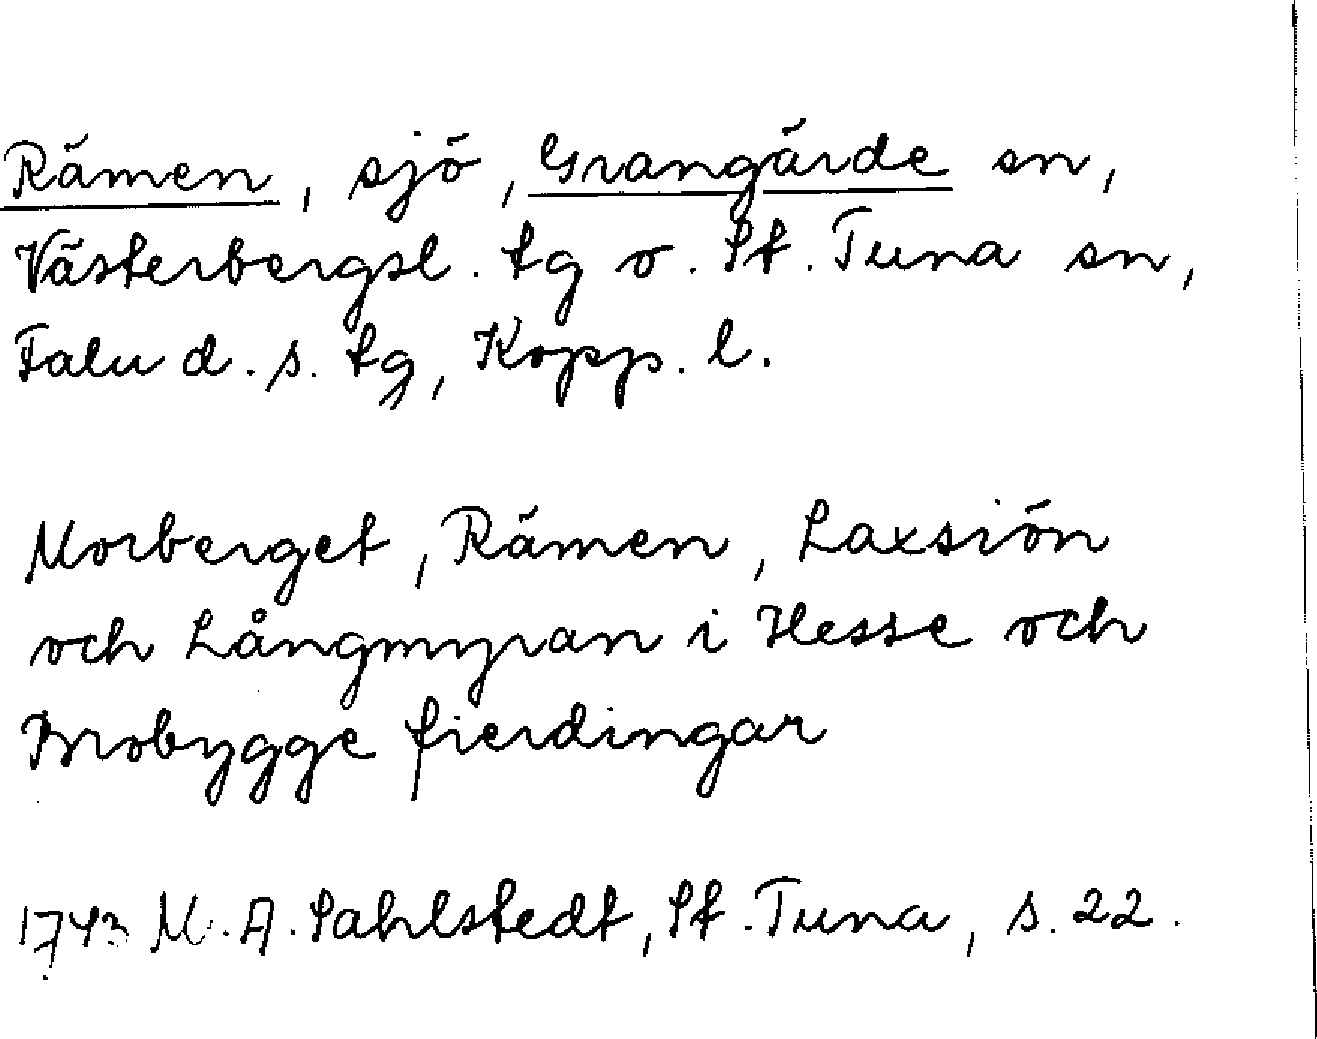 Rämen, sjö, Grangärde sn,
Västerbergsl. tg o. St. Tuna sn,
Falu d. s. tg, Kopp. l.
Morberget, Rämen, Laxsiön
och Långmyran i Hesse och
Brobygge fierdingar
1743 M. A. Sahlstedt, St. Tuna, s. 22.